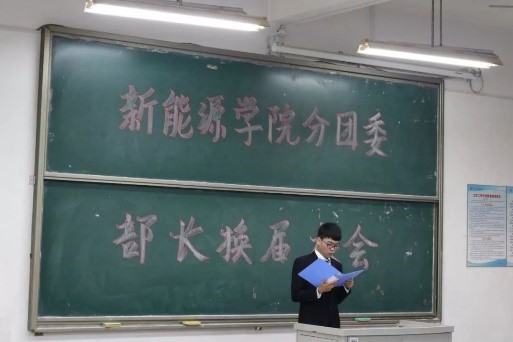 新能源学院分团委
部长换届 会